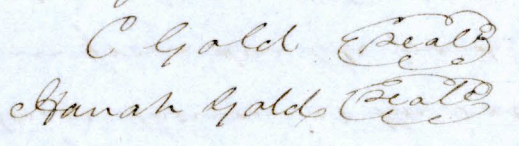 C Gold Seal
Hanah Gold Seal